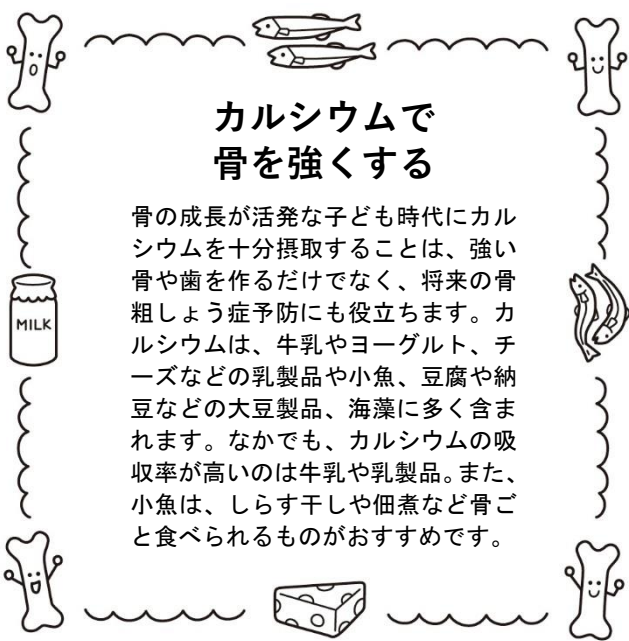 カルシウムで
骨を強くする
骨の成長が活発な子ども時代にカル
シウムを十分摂取することは、強い
骨や歯を作るだけでなく、将来の骨
粗しょう症予防にも役立ちます。カ
ルシウムは、牛乳やヨーグルト、チ
ーズなどの乳製品や小魚、豆腐や納
豆などの大豆製品、海藻に多く含ま
れます。なかでも、カルシウムの吸
収率が高いのは牛乳や乳製品。また、
小魚は、しらす干しや佃煮など骨ご
と食べられるものがおすすめです。
MILK